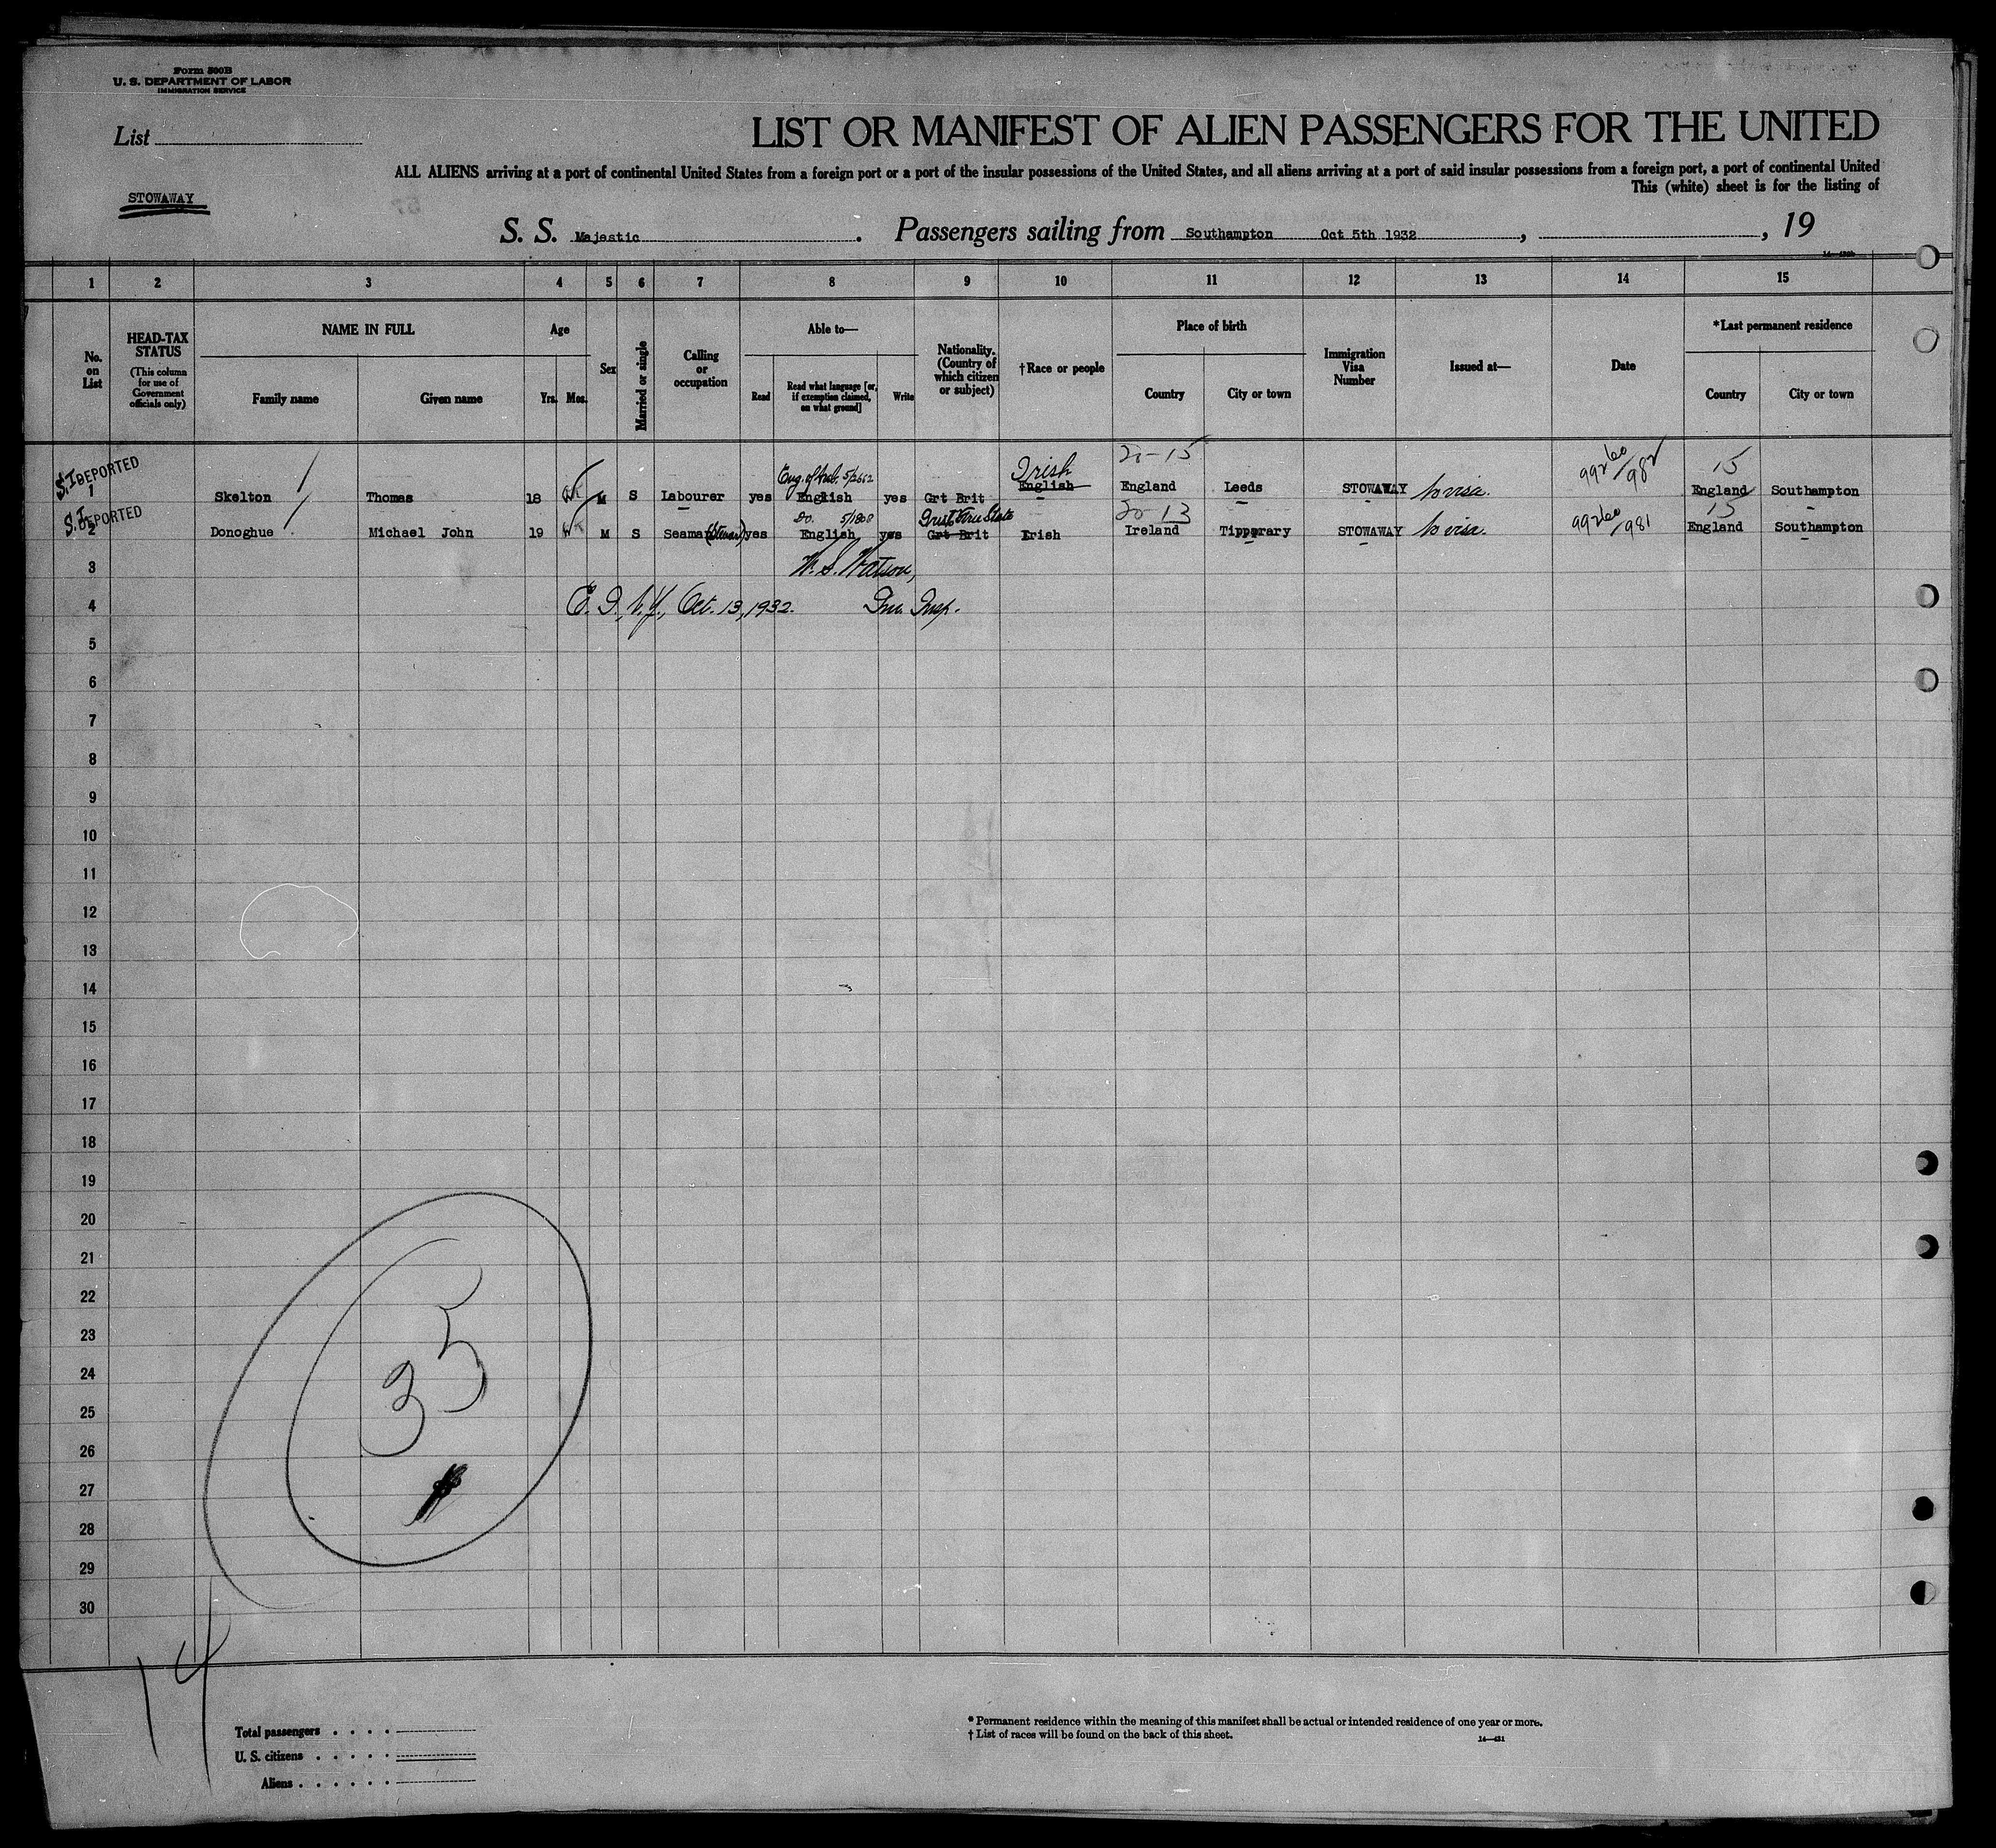 Form 500B
U. S. DEPARTMENT OF LABOR
IMMIGRATION SERVICE
List
LIST OR MANIFEST OF ALIEN PASSENGERS FOR THE UNITED
ALL ALIENS arriving at a port of continental United States from a foreign port or a port of the insular possessions of the United States, and all aliens arriving at a port of said insular possessions from a foreign port, a port of continental United
This (white) sheet is for the listing of
STOWAWAY
S. S. Majestic . Passengers sailing from Southampton Oct 5th 1932 , , 19
1 2 3 4 5 6 7 8 9 10 11 12 13 14 15
No. on List
HEAD-TAX STATUS
(This column for use of Government officials only)
NAME IN FULL
Family name Given name
Age
Yrs. Mos.
Sex
Married or single
Calling or occupation
Able to—
Read
Read what language [or, if exemption claimed, on what ground]
Write
Nationality. (Country of which citizen or subject)
†Race or people
Place of birth
Country City or town
Immigration Visa Number
Issued at—
Date
*Last permanent residence
Country City or town
20-15 99260/982 15
S.I. DEPORTED Irish
1 Skelton Thomas 18 M S Labourer yes English yes Grt Brit English England Leeds STOWAWAY No visa. England Southampton
S.I. DEPORTED Do. 5/1808 Irish Free State 20-13 99260/981 15
2 Donoghue Michael John 19 M S Seaman (Steward) yes English yes Grt Brit Irish Ireland Tipperary STOWAWAY No visa. England Southampton
3 W. S. Watson,
4 E. I., N.Y., Oct. 13, 1932. Imm. Insp.
5
6
7
8
9
10
11
12
13
14
15
16
17
18
19
20
21
22
23
24
25
26
27
28
29
30
35
14
Total passengers . . . .
U. S. citizens . . . . .
Aliens . . . . . .
* Permanent residence within the meaning of this manifest shall be actual or intended residence of one year or more.
† List of races will be found on the back of this sheet.
14—431